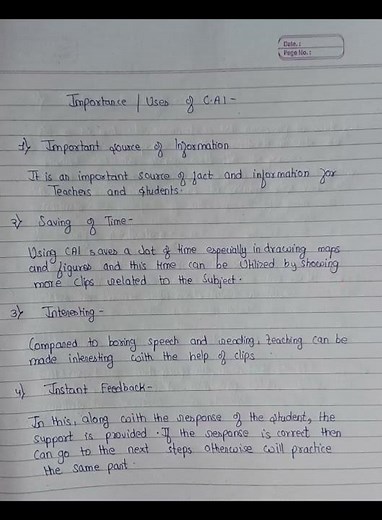 Date. :
Page No. :
Importance / Uses of C.A.I -
1) Important source of Information
It is an important source of fact and information for
Teachers and students.
2) Saving of Time -
Using CAI saves a lot of time especially in drawing maps
and figures and this time can be Utilized by showing
more clips related to the Subject.
3) Interesting -
Compared to boring speech and reading, teaching can be
made interesting with the help of clips
4) Instant Feedback -
In this, along with the response of the student, the
support is provided. If the response is correct then
can go to the next steps otherwise will practice
the same part.